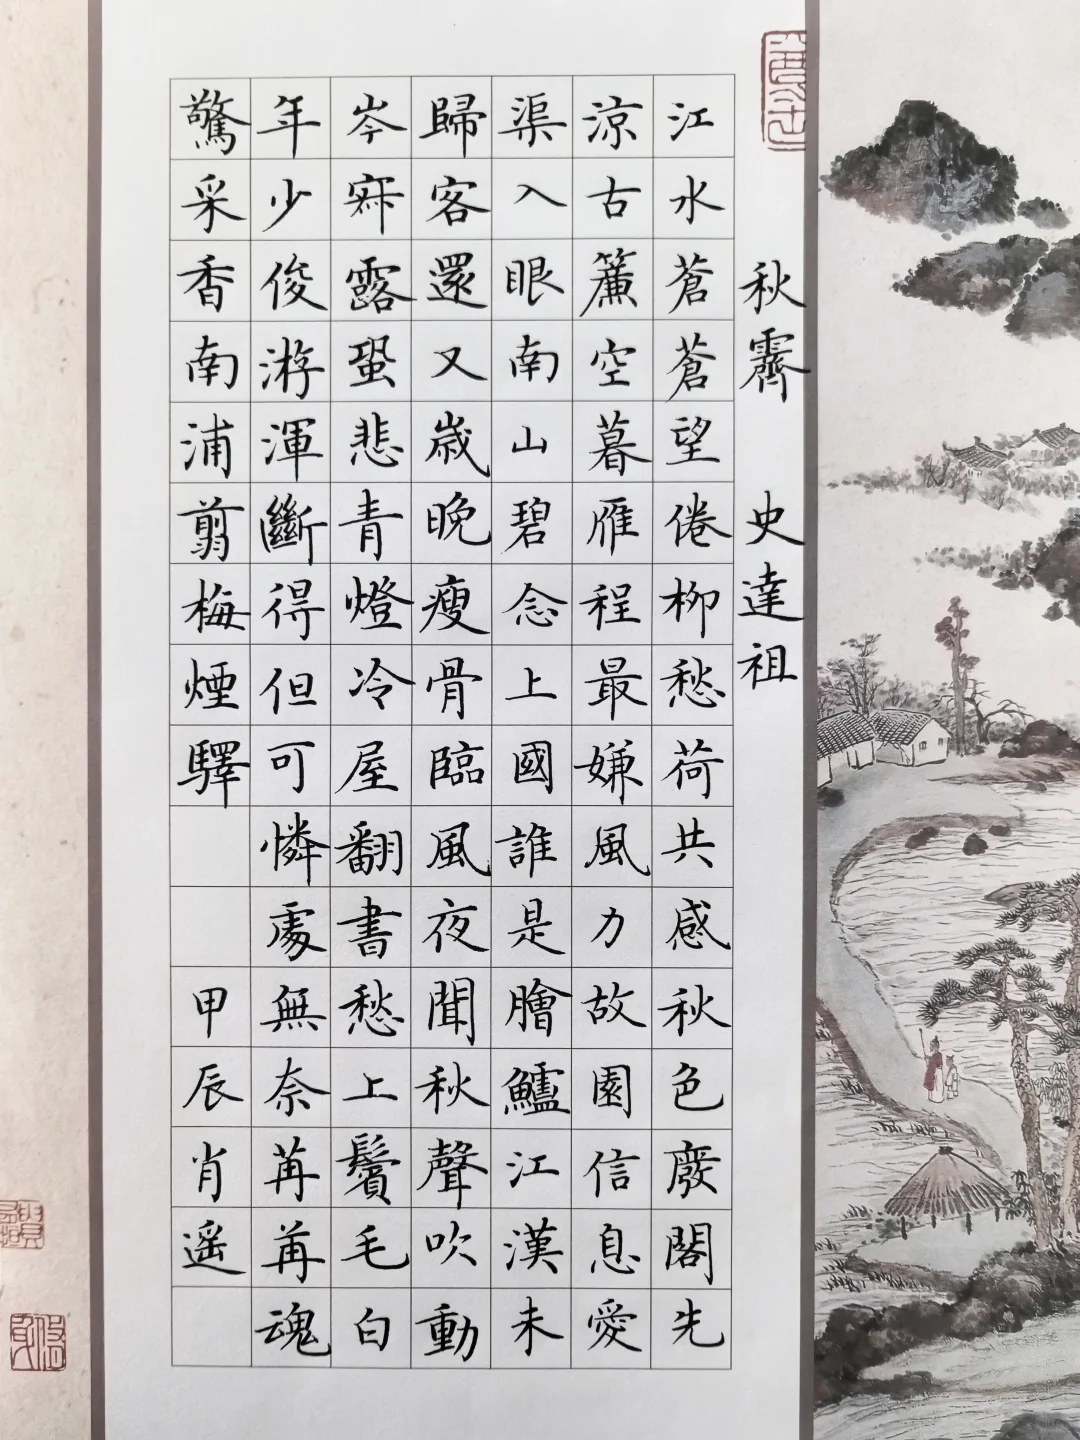 秋霽 史達祖
江水蒼蒼望倦柳愁荷共感秋色廢閣先
涼古簾空暮雁程最嫌風力故園信息愛
渠入眼南山碧念上國誰是膾鱸江漢未
歸客還又歲晚瘦骨臨風夜聞秋聲吹動
岑寂露蛩悲青燈冷屋翻書愁上鬢毛白
年少俊游渾斷得但可憐處無奈苒苒魂
驚采香南浦剪梅煙驛
甲辰肖遥